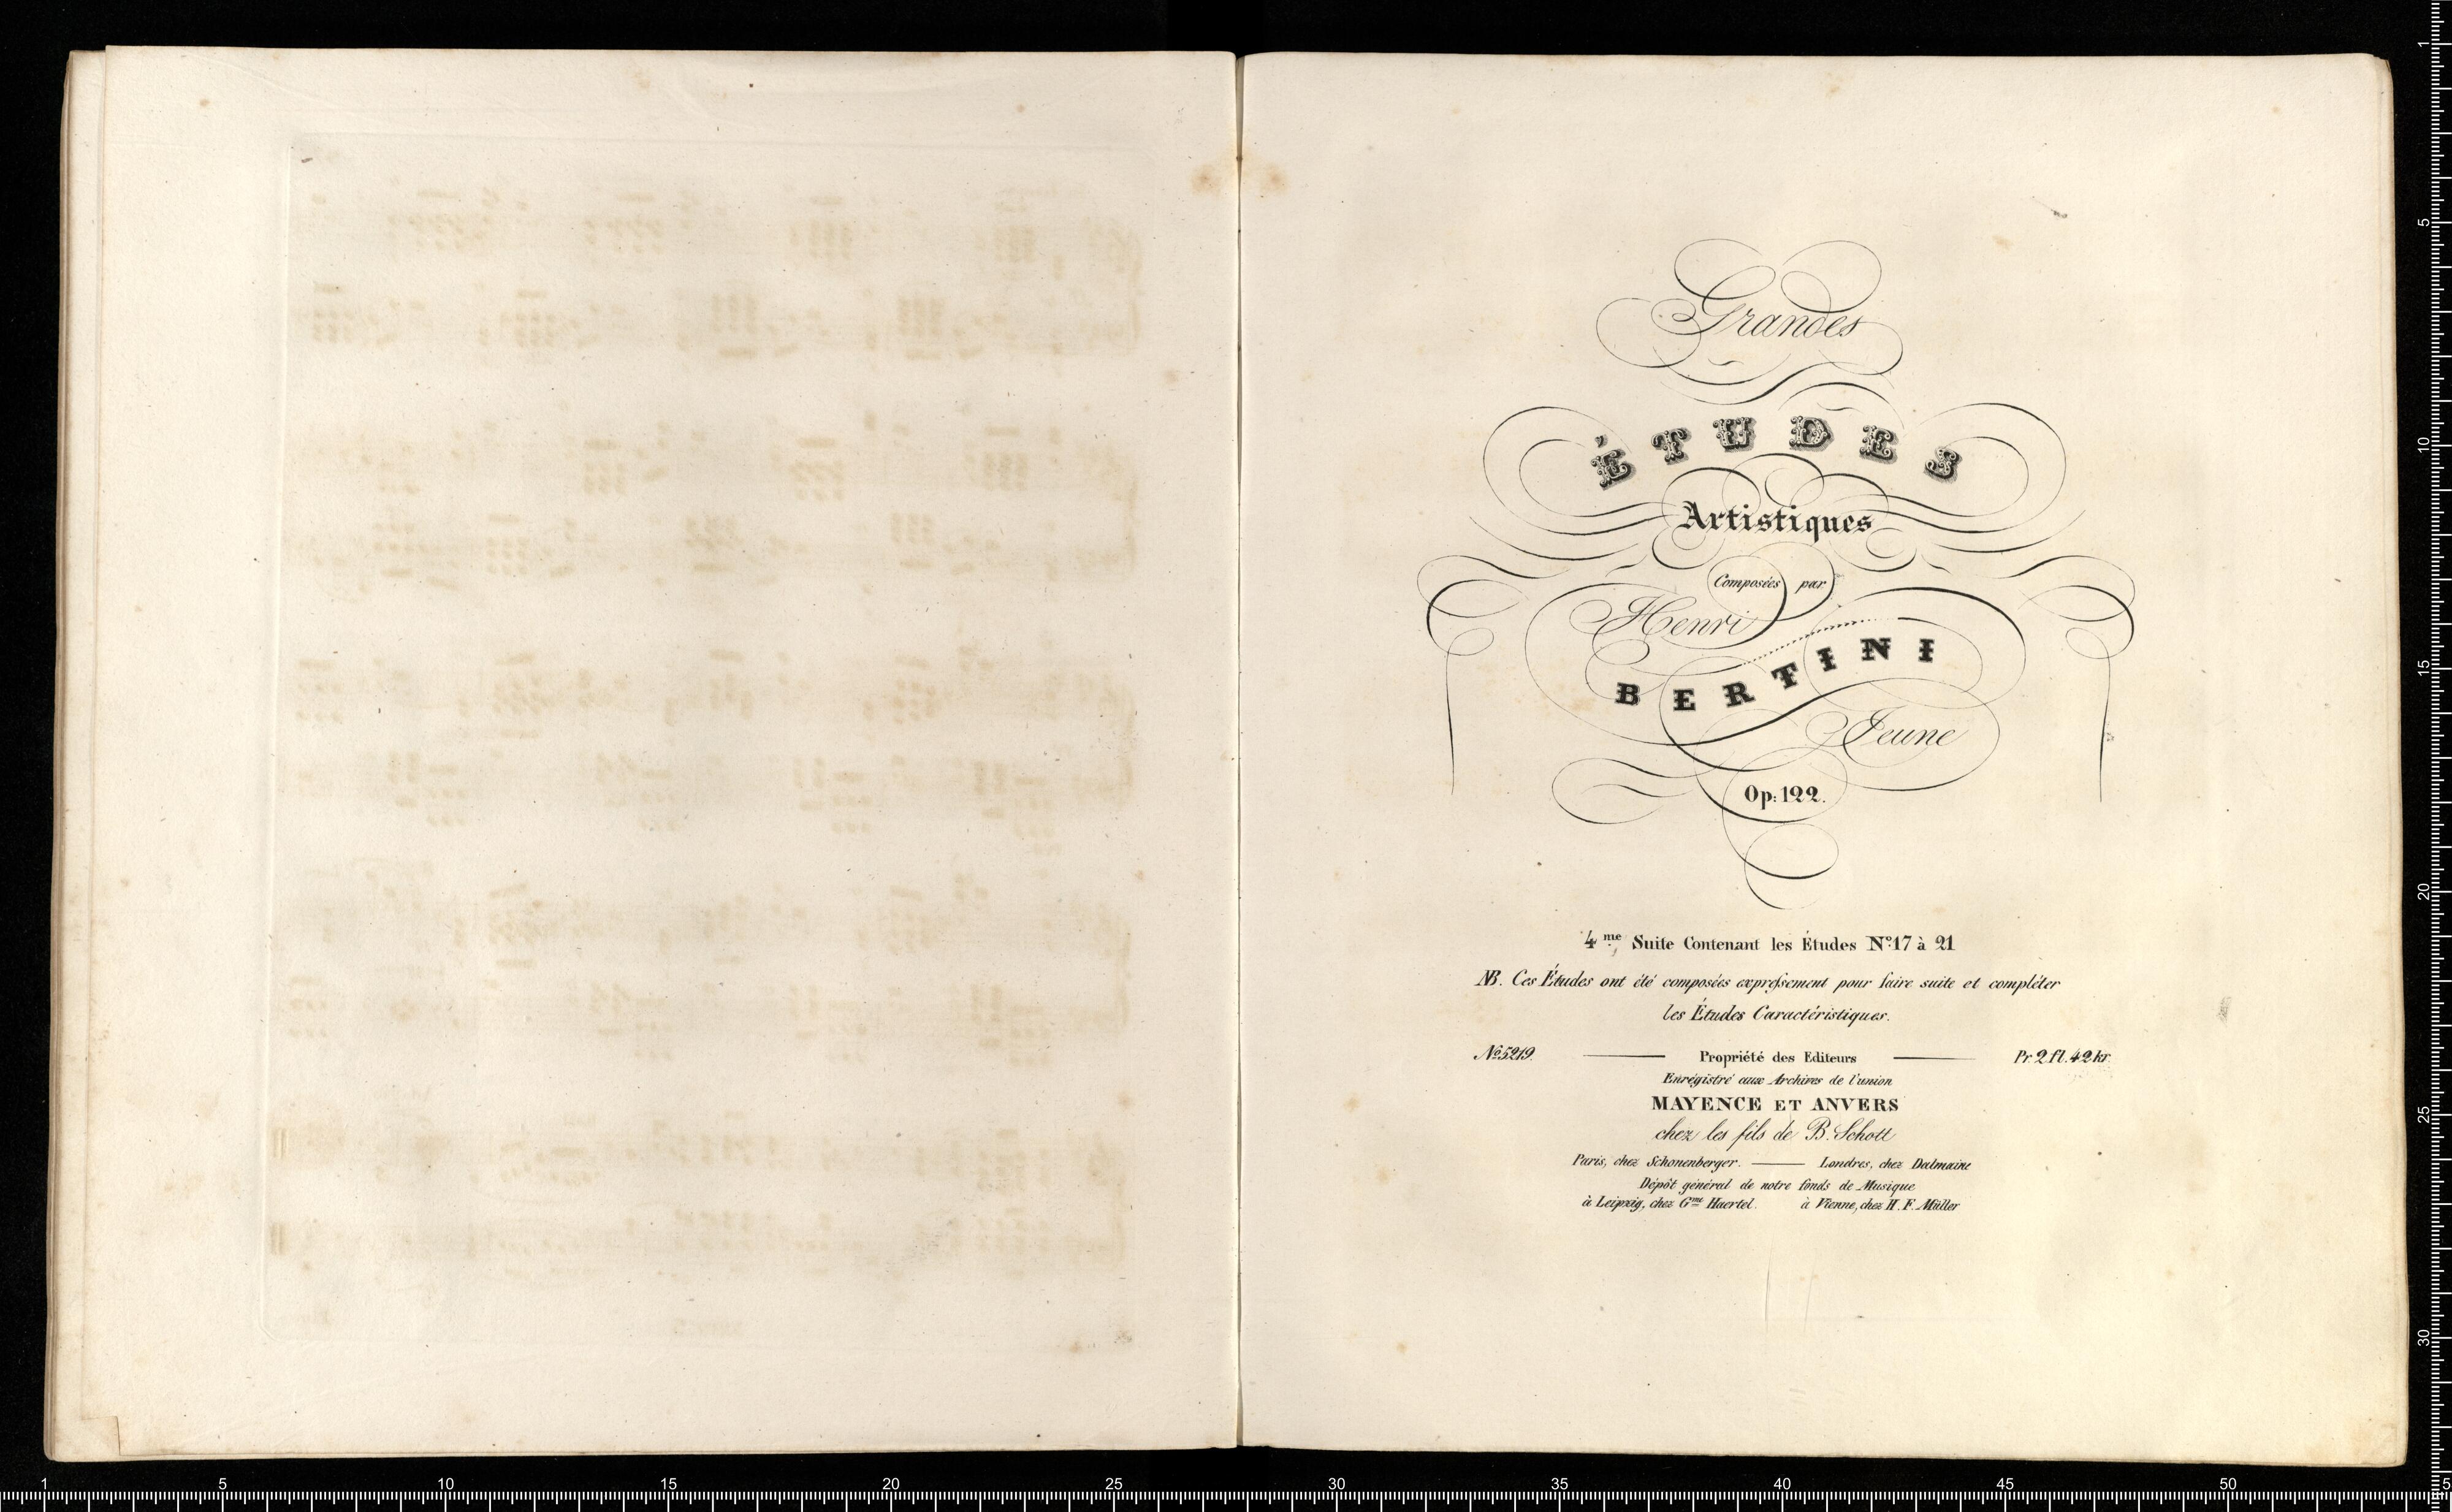 Grandes
ÉTUDES
Artistiques
Composées par
Henri
BERTINI
Jeune
Op: 122.
4.me Suite Contenant les Études Nº 17 à 21
NB. Ces Études ont été composées expreſsement pour faire suite et compléter
les Études Caractéristiques.
Nº 5219. Propriété des Editeurs Pr. 2 fl. 42 kr.
Enrégistré aux Archives de l'union
MAYENCE ET ANVERS
chez les fils de B. Schott
Paris, chez Schonenberger. Londres, chez Dalmaine
Dépôt général de notre fonds de Musique
à Leipzig, chez Gme Haertel. à Vienne, chez H. F. Müller
1 5 10 15 20 25 30 35 40 45 50 5
1 5 10 15 20 25 30